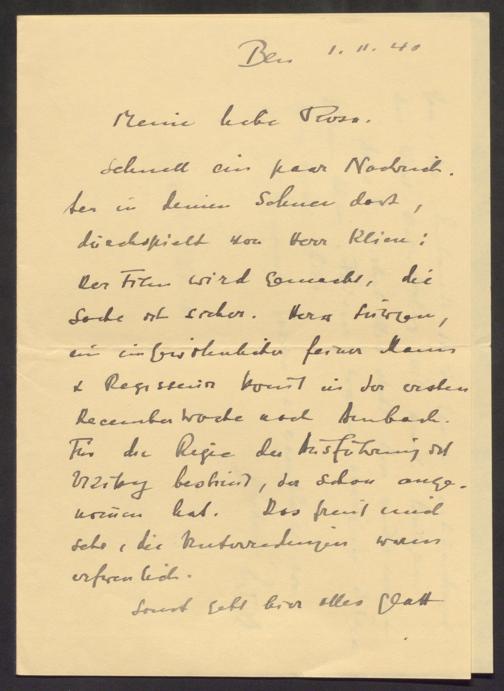 Bln 1. 11. 40
Meine liebe Rosa.
Schnell ein paar Nachrich-
ten in deinen Schnee dort,
von Herr Klien:
Der Film wird gemacht, die
Sache ist sicher. Herr Jürgen,
ein ungewöhnlicher feiner Mann
& Regisseur komt in der ersten
Decemberwoche nach Ambach.
Für die Regie der Ausführung ist
bestimt, der schon ange-
nomen hat. Das freut mich
sehr, die Unterredungen waren
erfreulich.
Sonst geht hier alles glatt